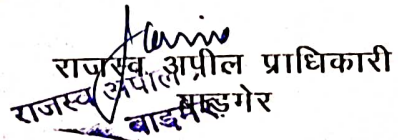 राजस्व अपील प्राधिकारी
बाड़गेर
राजस्व अपील
बाड़मेर